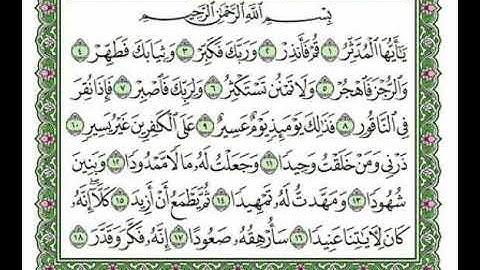 بِسْمِ اللَّهِ الرَّحْمَٰنِ الرَّحِيمِ
يَا أَيُّهَا الْمُدَّثِّرُ ١ قُمْ فَأَنذِرْ ٢ وَرَبَّكَ فَكَبِّرْ ٣ وَثِيَابَكَ فَطَهِّرْ ٤
وَالرُّجْزَ فَاهْجُرْ ٥ وَلَا تَمْنُن تَسْتَكْثِرُ ٦ وَلِرَبِّكَ فَاصْبِرْ ٧ فَإِذَا نُقِرَ
فِي النَّاقُورِ ٨ فَذَٰلِكَ يَوْمَئِذٍ يَوْمٌ عَسِيرٌ ٩ عَلَى الْكَافِرِينَ غَيْرُ يَسِيرٍ ١٠
ذَرْنِي وَمَنْ خَلَقْتُ وَحِيدًا ١١ وَجَعَلْتُ لَهُ مَالًا مَّمْدُودًا ١٢ وَبَنِينَ
شُهُودًا ١٣ وَمَهَّدتُّ لَهُ تَمْهِيدًا ١٤ ثُمَّ يَطْمَعُ أَنْ أَزِيدَ ١٥ كَلَّا إِنَّهُ
كَانَ لِآيَاتِنَا عَنِيدًا ١٦ سَأُرْهِقُهُ صَعُودًا ١٧ إِنَّهُ فَكَّرَ وَقَدَّرَ ١٨